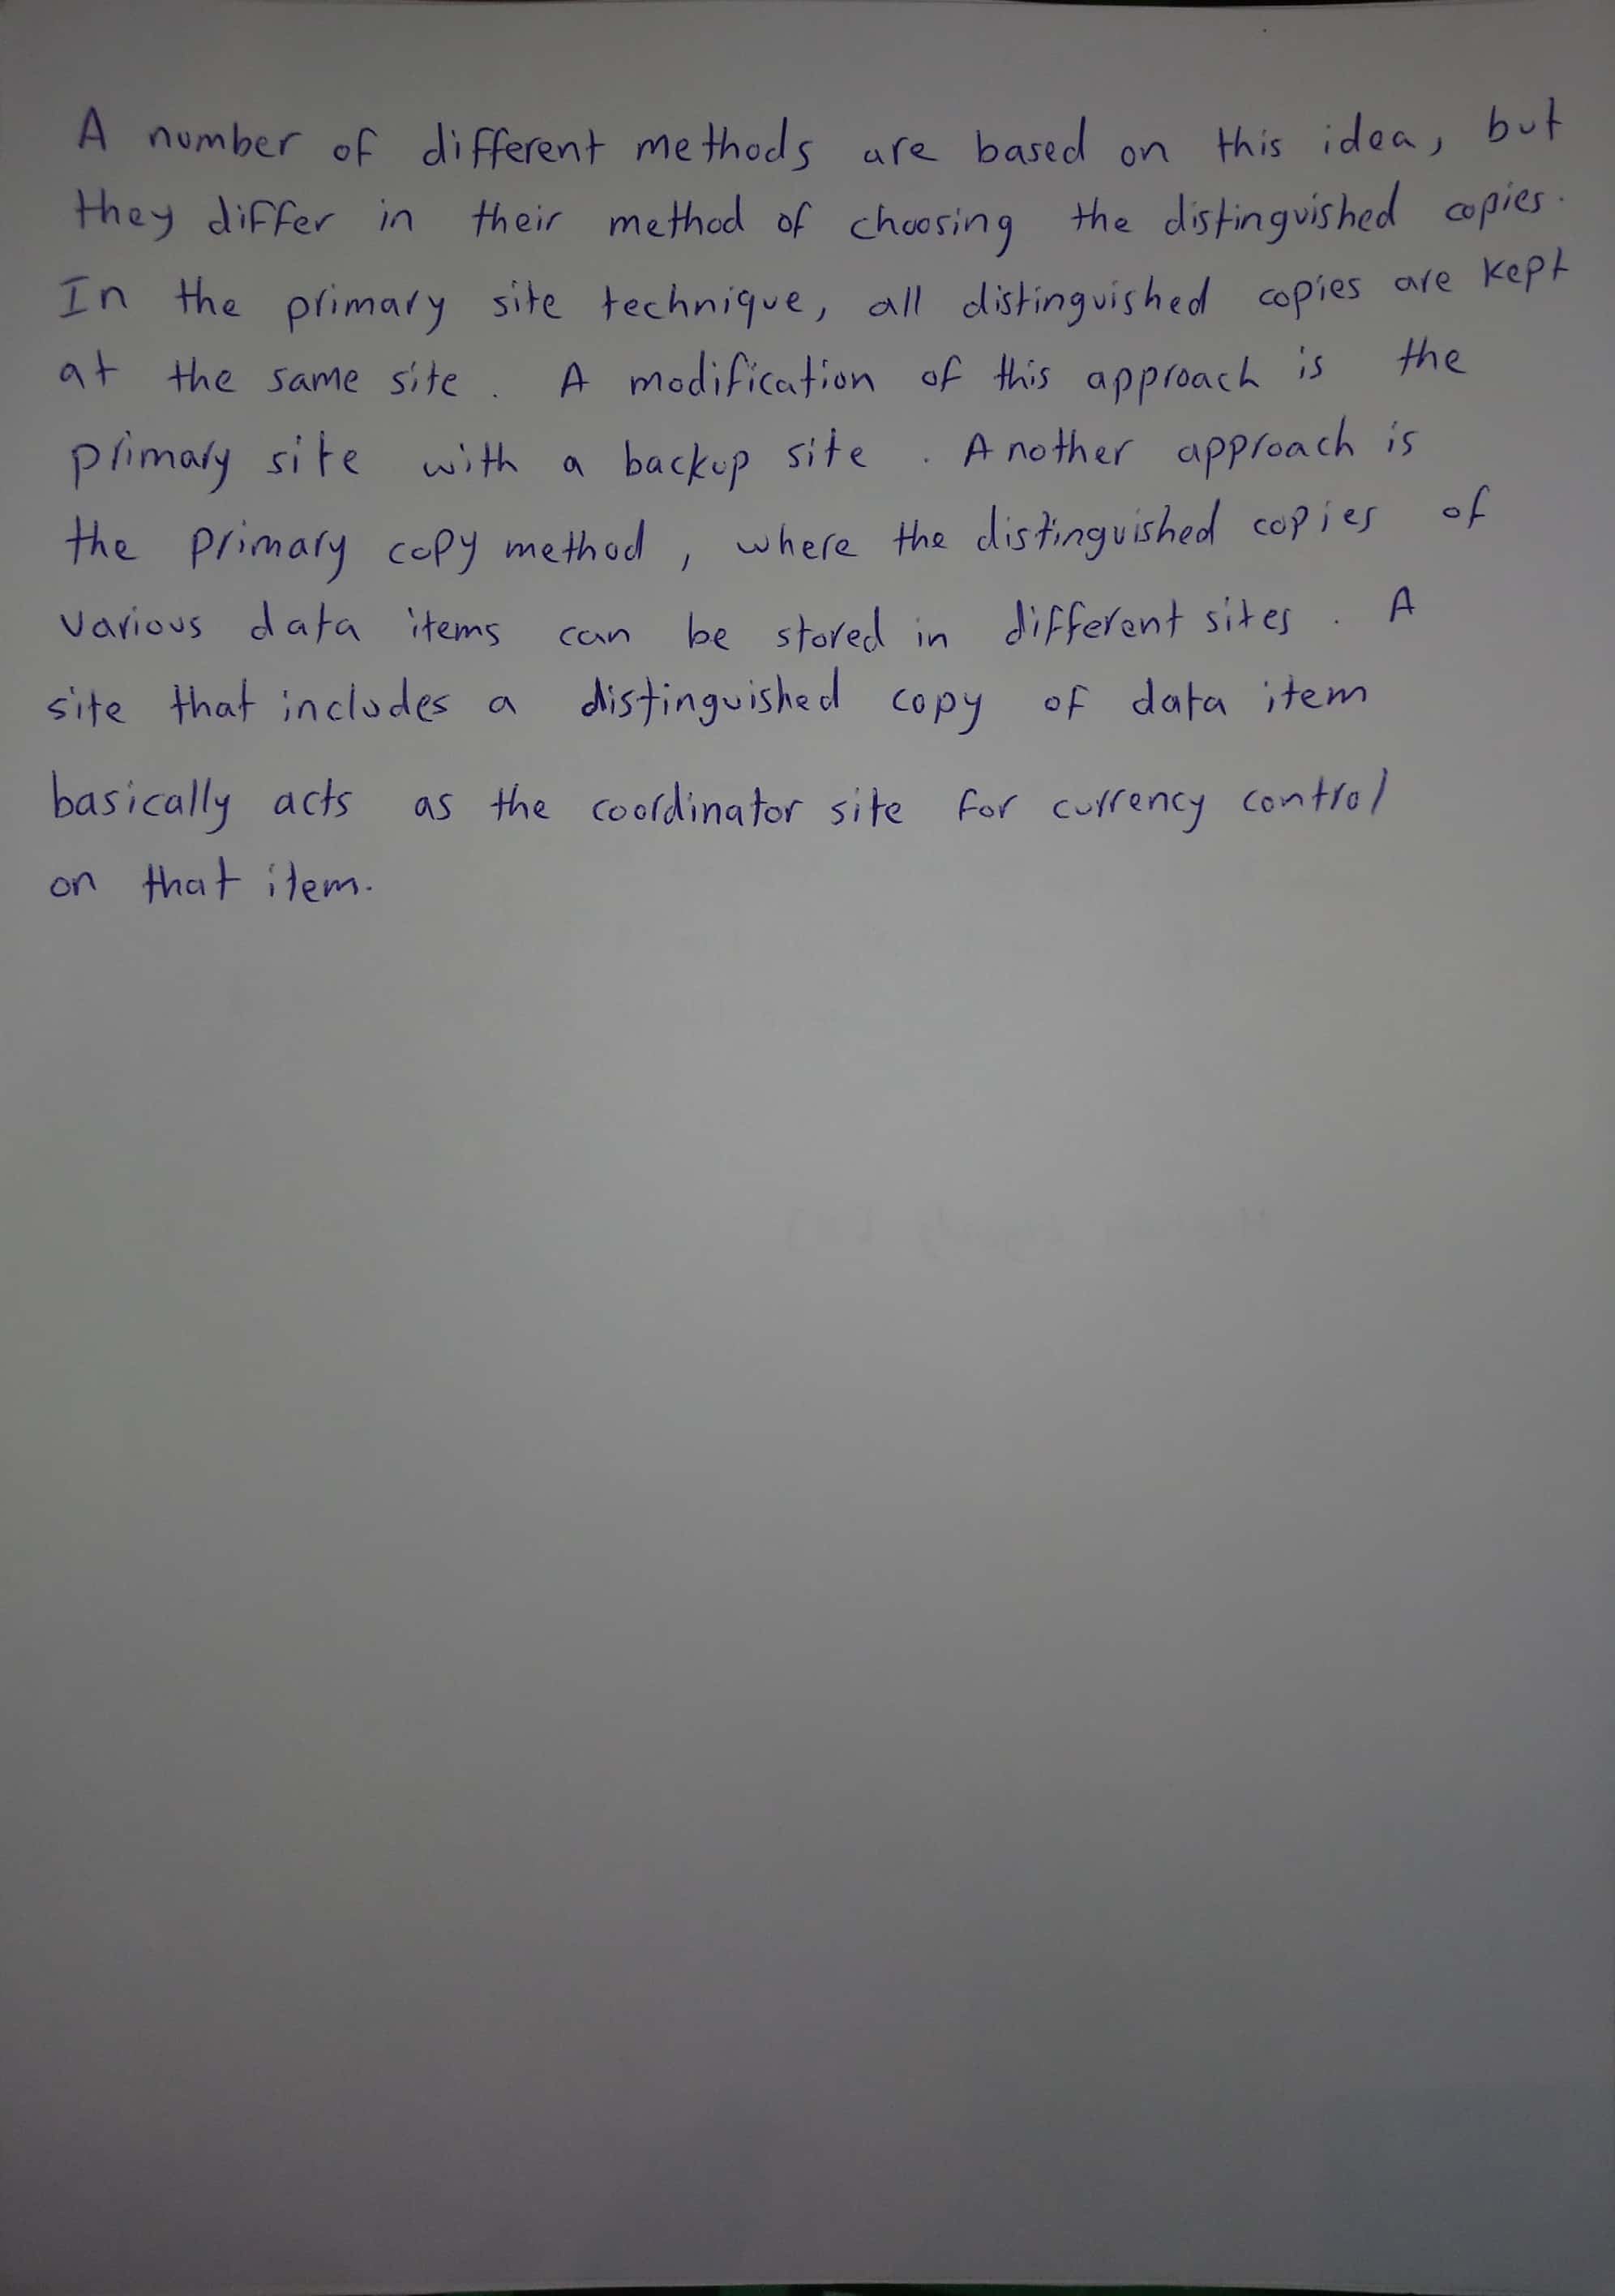 A number of different methods are based on this idea, but
they differ in their method of choosing the distinguished copies.
In the primary site technique, all distinguished copies are kept
at the same site. A modification of this approach is the
primary site with a backup site. Another approach is
the primary copy method, where the distinguished copies of
various data items can be stored in different sites. A
site that includes a distinguished copy of data item
basically acts as the coordinator site for currency control
on that item.